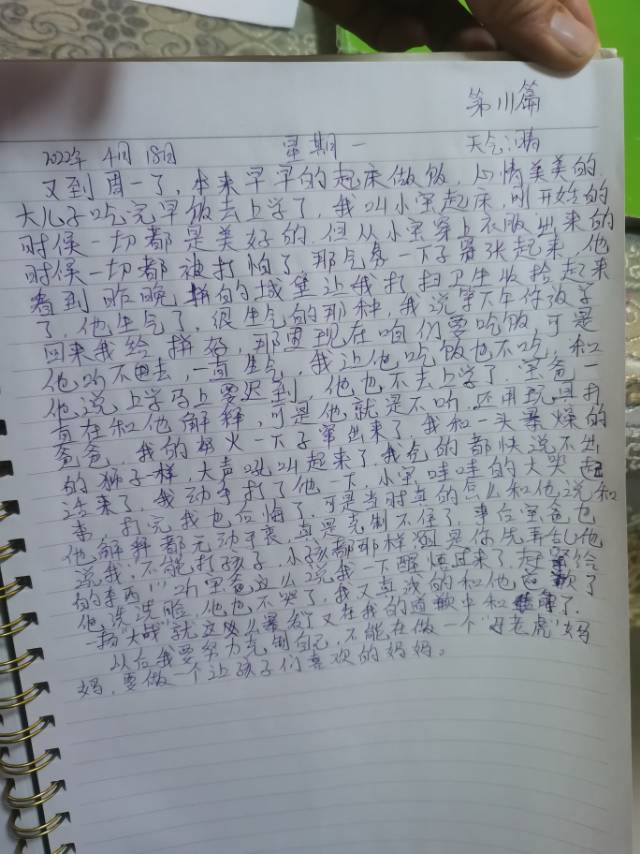 第111篇
2022年 4月 18日 星期一 天气:晴
又到周一了,本来早早的起床做饭,心情美美的
大儿子吃完早饭去上学了,我叫小宝起床,刚开始的
时侯一切都是美好的.但从小宝穿上衣服出来的
时侯一切都被打怕了.那气氛一下子紧张起来,他
看到昨晚拼的城堡让我打扫卫生收拾起来
了,他生气了,很生气的那种,我说等下午你放学
回来我给拼好,那重现在咱们要吃饭可是
他听不进去,一直生气,我让他吃饭也不吃,和
他说上学马上要迟到,他也不去上学了.宝爸一
直在和他解释,可是他就是不听.还用玩具打
爸爸,我的怒火一下子窜出来了.我和一头暴燥的
的狮子一样,大声吼叫起来了.我气的都快说不出
话来了,我动手打了他一下,小宝哇哇的大哭起
来,打完我也后悔了.可是当时真的怎么和他说和
他解释都无动于衷,真是克制不住了.事后宝爸也
说我,不能打孩子.小孩都那样 是你先弄乱他
的东西!!!听宝爸这么说我一下醒悟过来了.赶紧给
他洗洗脸,他也不哭了,我又真诚的和他 歉了
一场"大战"就这么 发了又在我的道歉中和解了.
以后我要努力克制自己,不能在做一个"母老虎"妈
妈,要做一个让孩子们喜欢的妈妈。